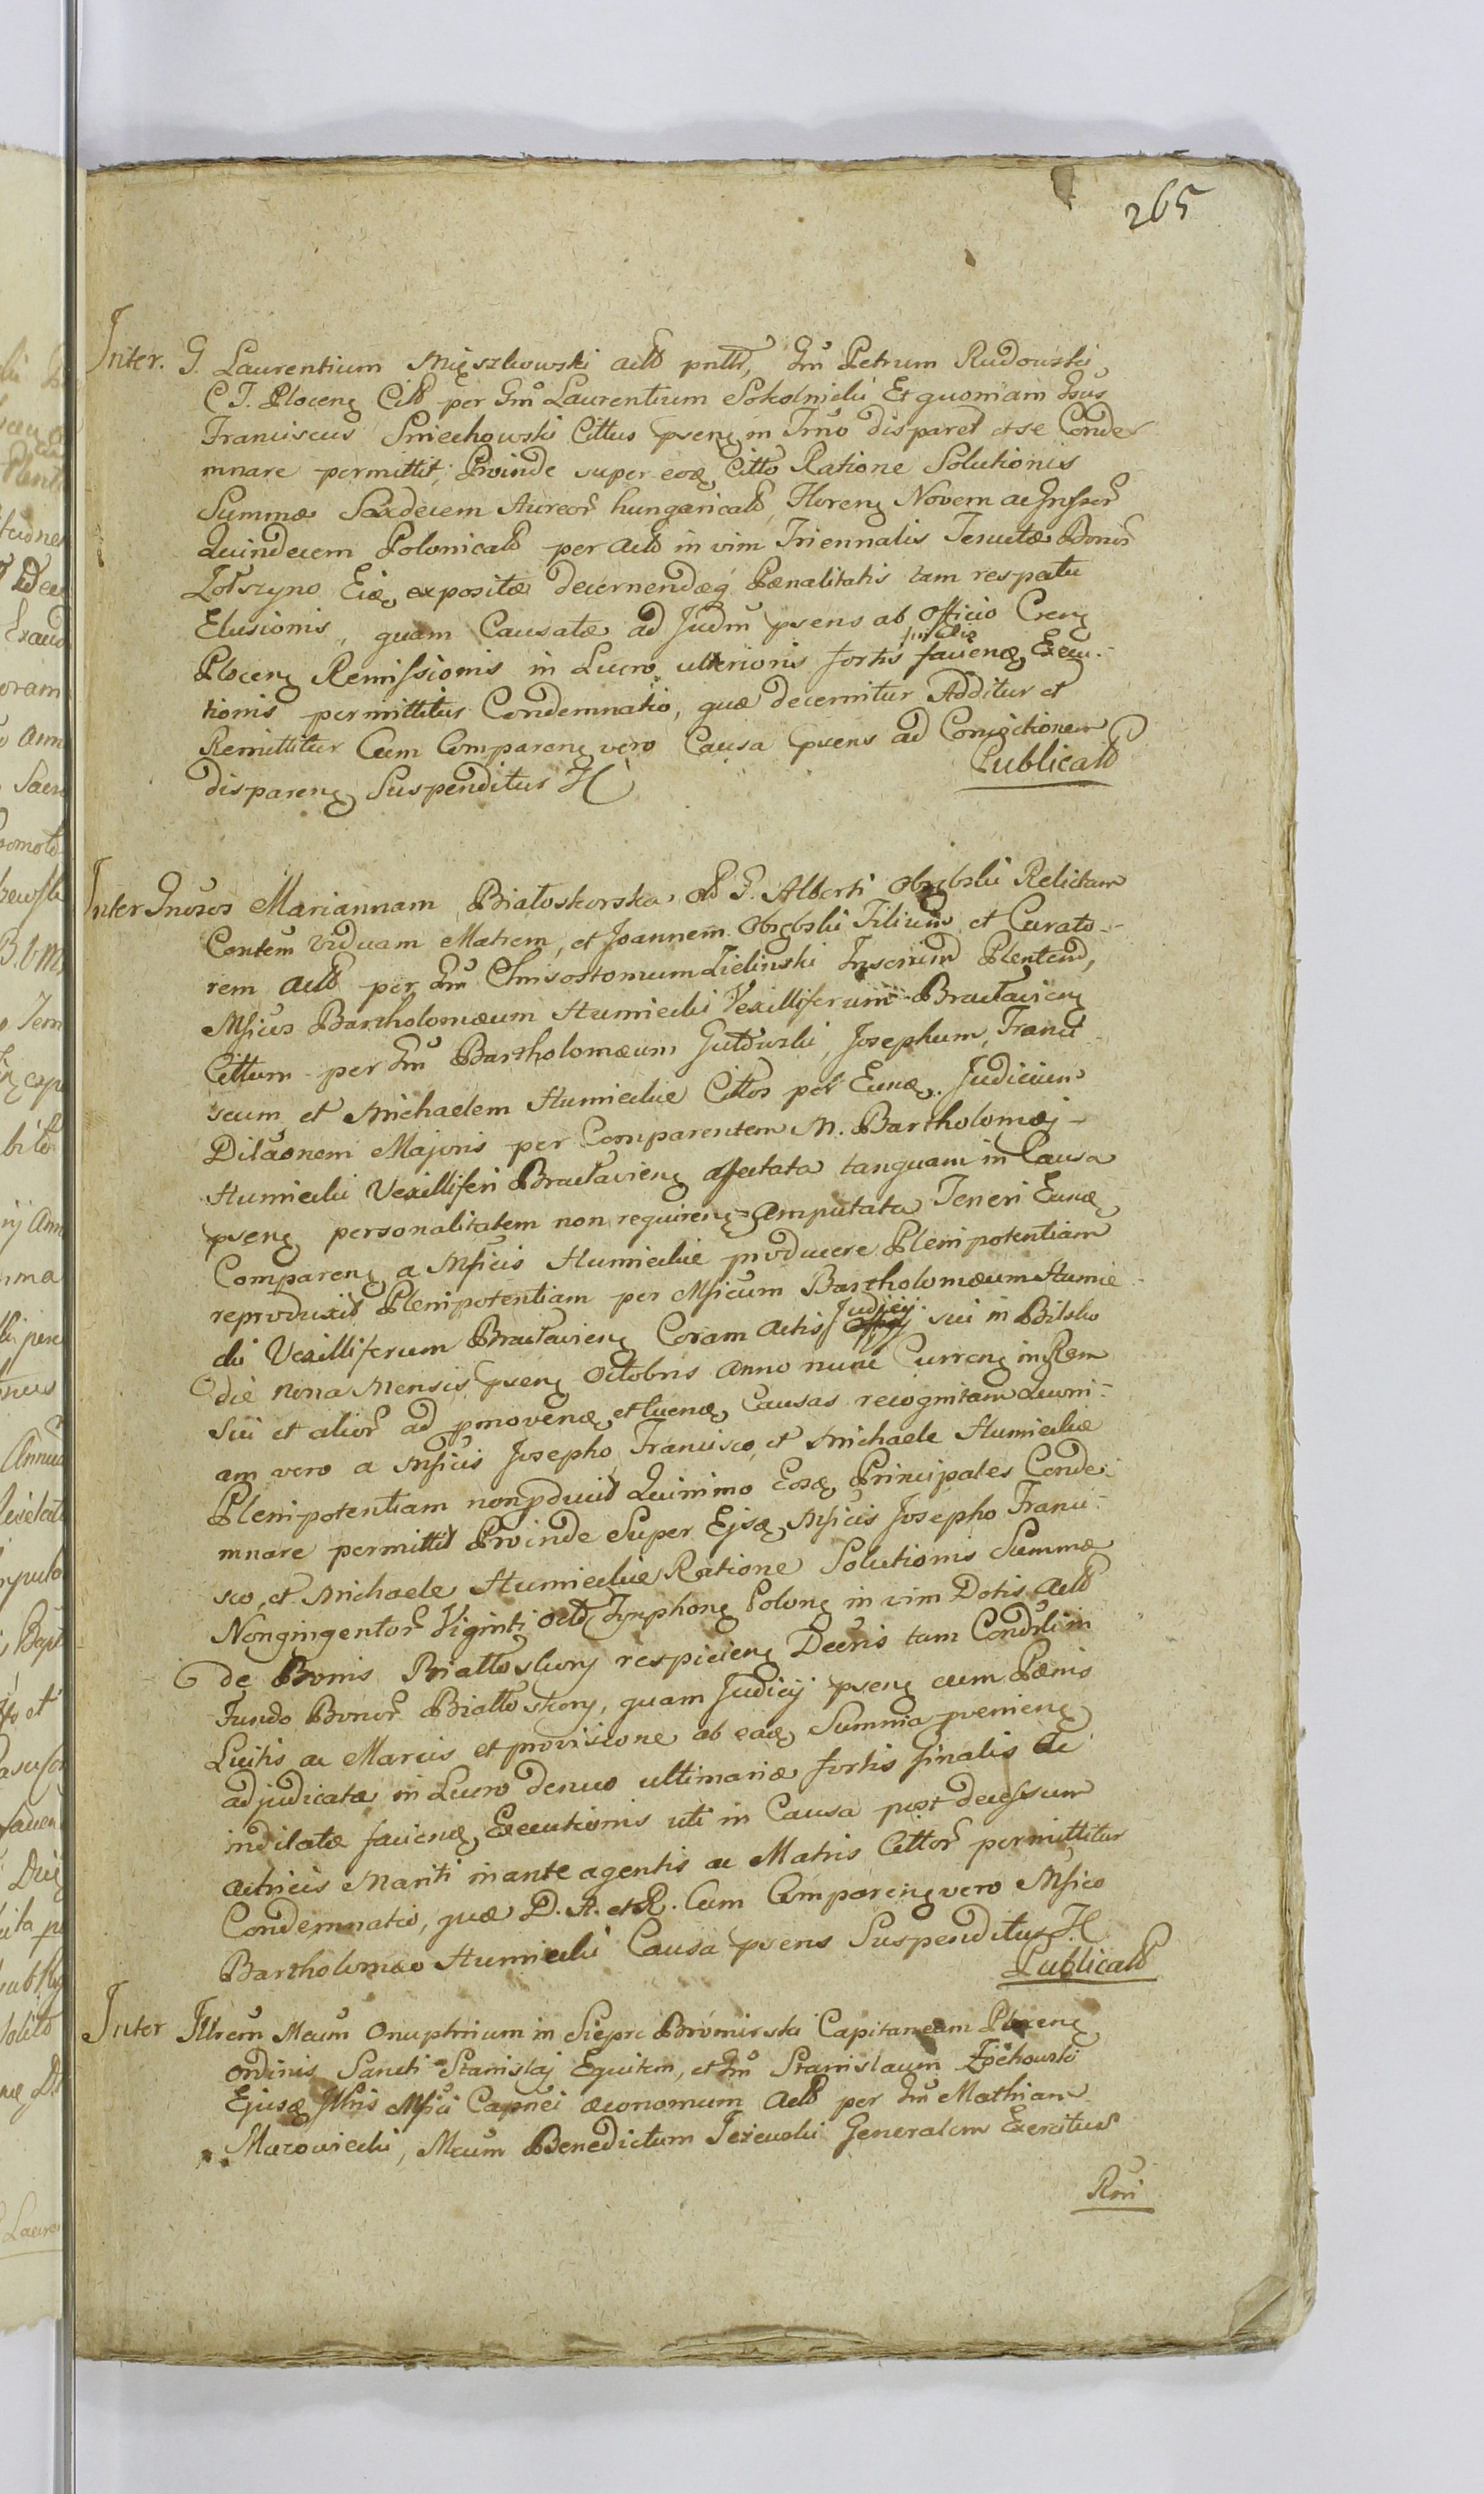 265
Inter. G. Laurentium Mięszkowski actt pntt, Gm Petrum Rudowski
C T. Plocens Citt per Gm Laurentium Sokolnicki Et quoniam Gsus
Franciscus Smiechowski Cittus psens in Trno disparet et se Conde
mnare permittit; Proinde super eoq Citto Ratione Solutionis
Summæ Sexdecem Aureor hungaricalt, Florens Novem ac Grssor
Quindecem Polonicalt per Actt in vim Triennalis Tenutæ Bonor
Eiq expositæ decernendæq Pœnalitatis tam respectu
Elusionis, quam Causatæ ad Judm psens ab Officio Crens
Plocens Remissionis in Lucro ulterioris fortis faciendæ Execu-
tionis permittitur Condemnatio, quæ decernitur Additur et
Remittitur Cum Comparens vero Causa psens ad Convictionem
disparens Suspenditur H Publicatt
Inter Gnosos Mariannam Białoskorska olt G. Alberti Obrębski Relictam
Contem Viduam Matrem, et Joannem Obrębski Filium et Curato-
rem Actt per Gm Chrisostomum Zielinski Plentem,
Mficos Bartholomæum Humiecki Vexilliferum Bractaviens
Cittum per Gm Bartholomæum Josephum, Franci
scum et Michaelem Humieckie Cittos per Eunq. Judicium
Dilaonem Majoris per Comparentem M. Bartholomæj
Humiecki Vexilliferi Bractaviens affectata tanquam in Causa
psens personalitatem non requirens amputata Teneri Eunq
Comparens a Mficis Humieckie producere Plenipotentiam
reproduxit Plenipotentiam per Mficum Bartholomæum Humie
cki Vexilliferum Bractaviens Coram Actis Judicij sui in Bilsko
die nona Mensis psens Octobris Anno nunc Currens in Rem
Sui et alior ad pmovenq et luenq Causas recognitam Quoni-
am vero a Mficis Josepho Francisco et Michaele Humieckie
Plenipotentiam non pduxit Quinimo Eosq Principales Conde-
mnare permittit Proinde Super Ejsq Mficis Josepho Franci-
sco, et Michaele Humieckie Ratione Solutionis Summæ
Nongingentor Viginti Octo Tynphons Polons in vim Dotis Actt
de Bonis Białłoskory respiciens Decris tam Condrli in
Fundo Bonor Białłoskory, quam Judicij psens cum Pœnis
Lucitis ac Marcis et provisione ab eaq Summa pveniens
adjudicatæ in Lucro denuo ultimariæ fortis finalis ac
indilatæ facienq Executionis uti in Causa post decessum
actricis Mariti inante agentis ac Matris Cittor permittitur
Condemnatio, quæ D. A. et R. Cum Comparens vero Mfico
Bartholomæo Humiecki Causa psens Suspenditur H
Publicatt
Inter Illrem Mcum Onuphrium in Sieprc Bromirski Capitaneum Plocens
Ordinis Sancti Stanislaj Equitem, et Gm Stanislaum
Ejusq Illris Mfici Capnei œconomum Actt per Gm Mathiam
Mazowiecki, Mcum Benedictum Jezewski Generalem Exercitus
Rni